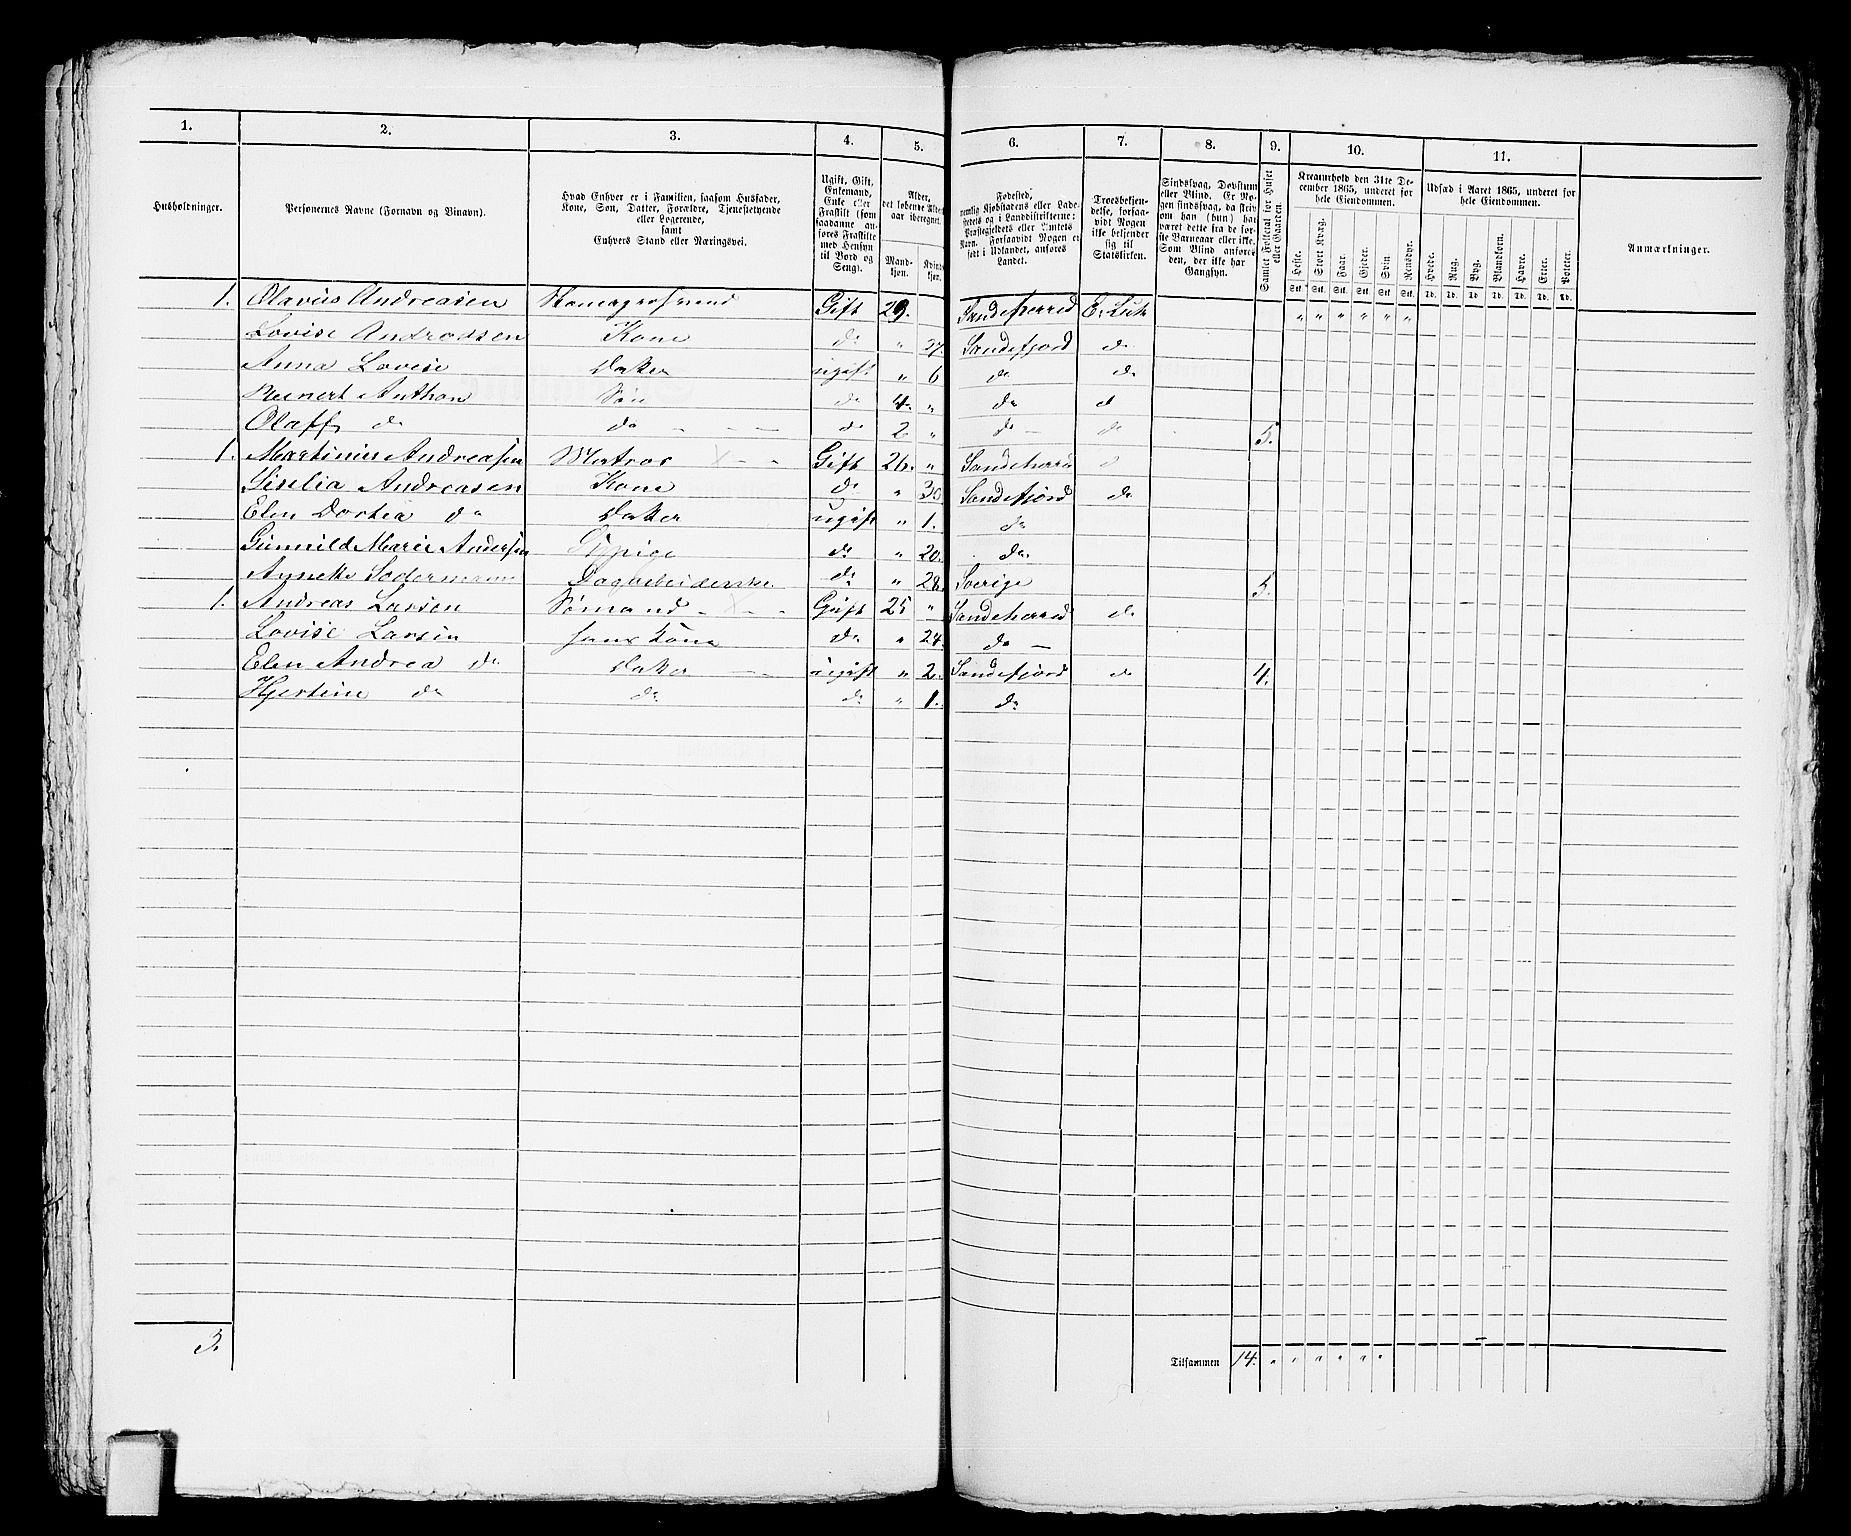 1. 2. 3. 4. 5. 6. 7. 8. 9. 10. 11.
Husholdninger.
Personernes Navne (Fornavn og Binavn).
Hvad Enhver er i Familien, saasom Husfader,
Kone, Søn, Datter, Forældre, Tjenestetyende
eller Logerende,
samt
Enhvers Stand eller Næringsvei.
Ugift, Gift,
Enkemand,
Enke eller
Fraskilt (som
saadanne an-
føres Fraskilte
med Hensyn
til Bord og
Seng).
Alder,
det løbende Alders-
aar iberegnet.
Mand-
kjøn.
Kvinde-
kjøn.
Fødested,
nemlig Kjøbstadens eller Lade-
stedets og i Landdistrikterne:
Præstegjeldets eller Amtets
Navn. Forsaavidt Nogen er
født i Udlandet, anføres
Landet.
Troesbekjen-
delse, forsaa-
vidt Nogen
ikke bekjender
sig til
Statskirken.
Sindssvag, Døvstum
eller Blind. Er No-
gen sindssvag, da skriv
om han (hun) har
været dette fra de før-
ste Barneaar eller ikke.
Som Blind anføres
den, der ikke har
Gangsyn.
Samlet Folketal for Huset
eller Gaarden.
Kreaturhold den 31te De-
cember 1865, underet for
hele Eiendommen.
Heste. Stort Kvæg. Faar. Gjeder. Svin. Rensdyr.
Stk. Stk. Stk. Stk. Stk. Stk.
Udsæd i Aaret 1865, underet for
hele Eiendommen.
Hvede. Rug. Byg. Blandkorn. Havre. Erter. Poteter.
Td. Td. Td. Td. Td. Td. Td.
Anmærkninger.
1. Olavus Andreasen Gift 29. Sandeherred E. Luth " " " " " "
Lovise Andreasen Kone do " 27. Sandefjord do
Anna Lovise Datter ugift " 6 do do
Reinert Anthon Søn do 4. " do d
Olaff do do do 2 " do do 5.
1. Martinius Andreasen Matros Gift 26. " Sandeherred
Giselia Andreasen Kone do " 30 Sandefjord do
Elen Dortea do Datter ugift " 1. do
Gunnild Marie Andersen Tj.pige do " 20. do
Annette Sodermann do " 28. Sverige 5.
1. Andreas Larsen Sømand Gift 25 " Sandeherred do
Lovise Larsen hans Kone do " 24. do
Elen Andrea do Datter ugift " 2. Sandefjord do 4.
Hjertine do do do " 1. do
3.
Tilsammen 14. " " " " " "